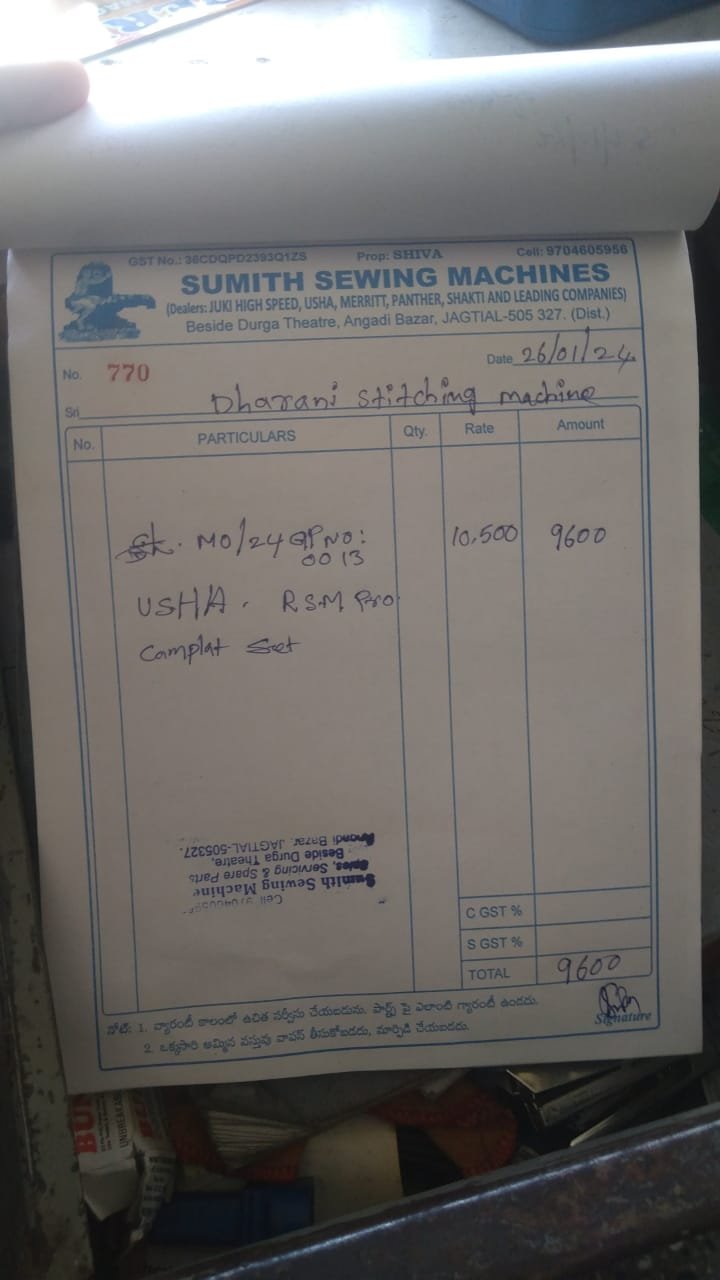 GST No.: 36CDQPD2393Q1ZS Prop: SHIVA Cell: 9704605956
SUMITH SEWING MACHINES
(Dealers: JUKI HIGH SPEED, USHA, MERRITT, PANTHER, SHAKTI AND LEADING COMPANIES)
Beside Durga Theatre, Angadi Bazar, JAGTIAL-505 327. (Dist.)
No. 770 Date 26/01/24
Sri Dharani Stitching machine
No. PARTICULARS Qty. Rate Amount
MO/24 GP NO: 10.500 9600
0013
USHA. RSM Pro
Camplat Set
Cell
Sumith Sewing Machine
Sales, Servicing & Spare Parts
Beside Durga Theatre,
Angadi Bazar, JAGTIAL-505327.
C GST %
S GST %
TOTAL 9600
నోట్: 1. వ్యారంటీ కాలంలో ఉచిత సర్వీసు చేయబడును. పార్ట్స్ పై ఎలాంటి గ్యారంటీ ఉండదు.
2. ఒక్కసారి అమ్మిన వస్తువు వాపస్ తీసుకోబడదు, మార్పిడి చేయబడదు.
Signature